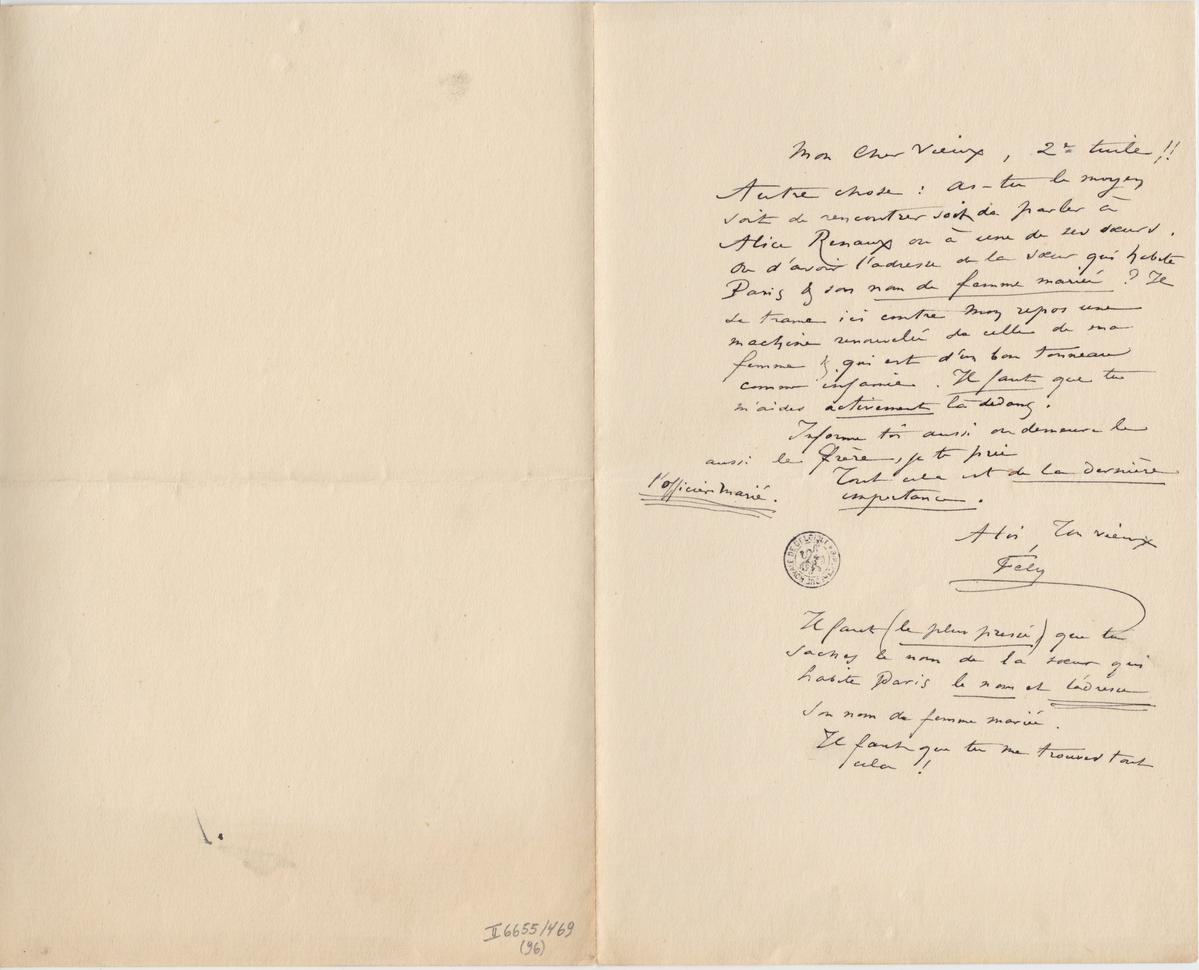 Mon Cher Vieux, 2e tuile !!
Autre chose : as-tu le moyen
soit de rencontrer soit de parler à
Alice Renaux ou à une de ses sœurs.
Ou d'avoir l'adresse de la sœur qui habite
Paris & son nom de femme mariée ? Il
se trame ici contre mon repos une
machine renouvelée de celle de ma
femme & qui est d'un bon tonneau
comme infamie. Il faut que tu
m'aides activement là dedans.
Informe toi aussi ou demeure le
aussi le frère, je te prie
l'officier marié.
Tout cela est de la dernière
importance.
A toi, Ton vieux
Fély
Il faut (le plus pressé) que tu
saches le nom de la sœur qui
habite Paris le nom et l'adresse
Son nom de femme mariée.
Il faut que tu me trouves tout
cela !
II 6655/469
(96)